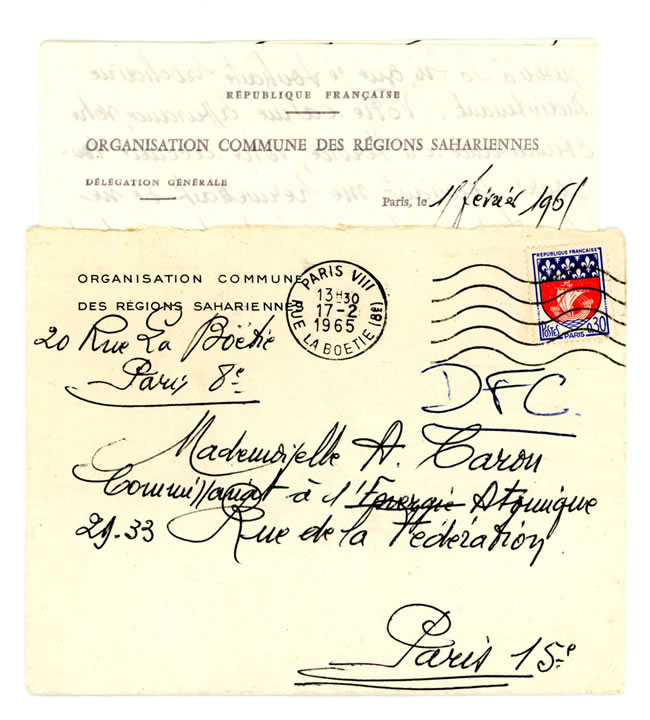 RÉPUBLIQUE FRANÇAISE
ORGANISATION COMMUNE DES RÉGIONS SAHARIENNES
DÉLÉGATION GÉNÉRALE
Paris, le février 1965
ORGANISATION COMMUNE
DES RÉGIONS SAHARIENNE
PARIS VIII
13H30
17-2
1965
RUE LA BOETIE (8E)
REPUBLIQUE FRANÇAISE
POSTES
0,30
PARIS
20 Rue La Boëtie
Paris 8e
DFC.
Mademoiselle A. Caron
Commissariat à l'Energie Atomique
29-33 Rue de la Fédération
Paris 15e